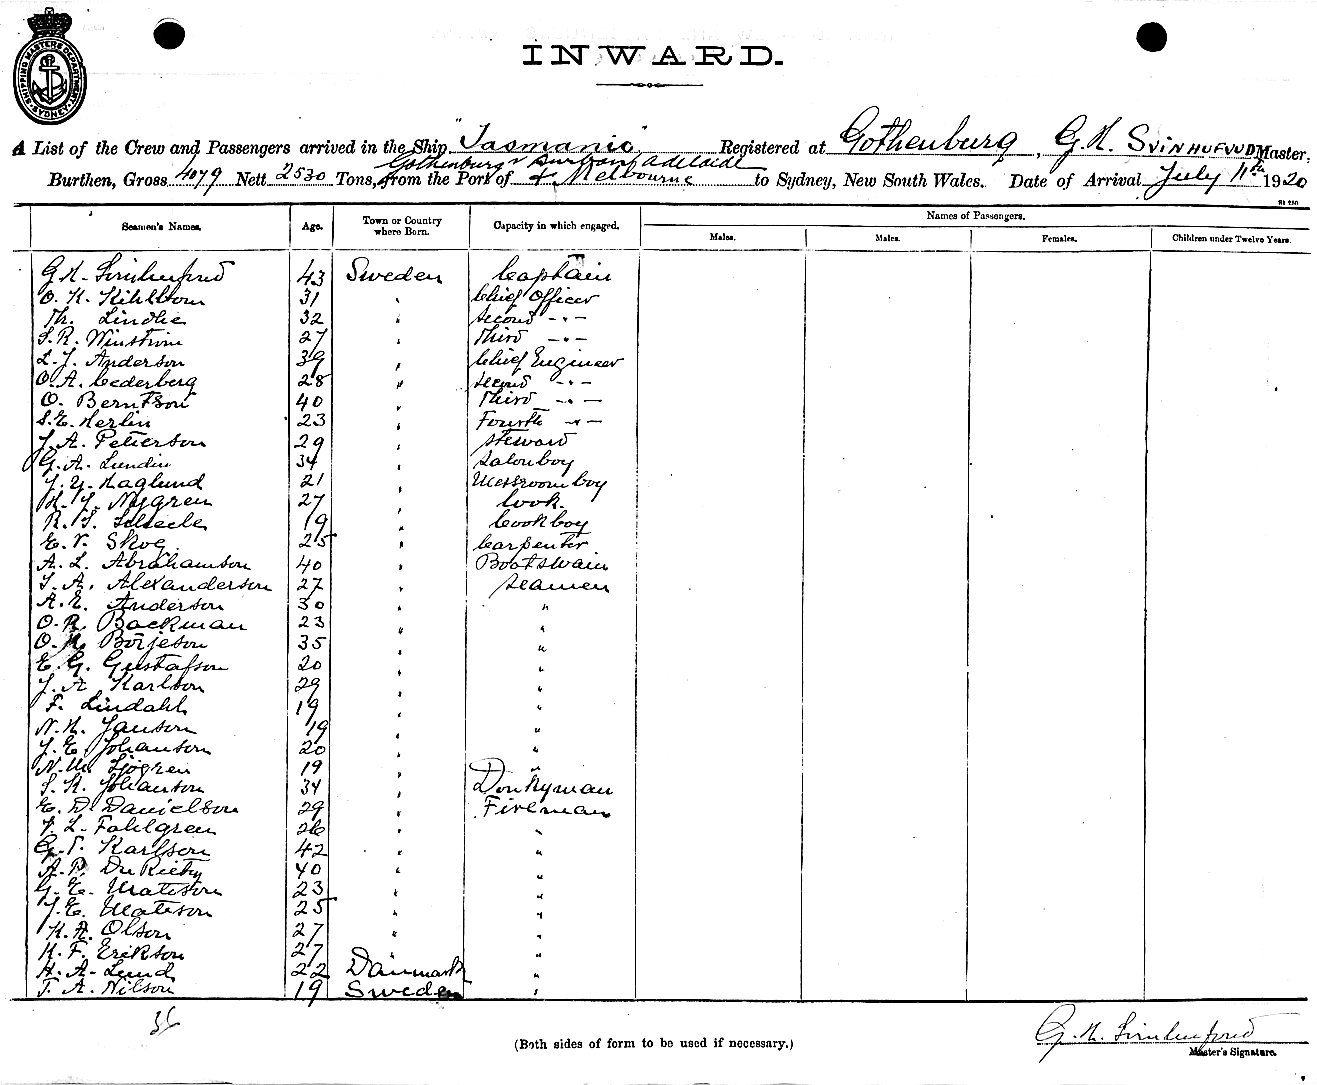 SHIPPING MASTERS DEPARTMENT SYDNEY
INWARD.
A List of the Crew and Passengers arrived in the Ship "Tasmanic" Registered at Gothenburg, G.K. SVINHUFVUD Master,
Burthen, Gross 4079 Nett 2530 Tons, from the Port of Gothenburg Durban Adelaide & Melbourne to Sydney, New South Wales. Date of Arrival July 11th 1920
Seamen's Names. Age. Town or Country where Born. Capacity in which engaged. Names of Passengers.
Males. Males. Females. Children under Twelve Years.
G.K. 43 Sweden Captain
O. K. Kihlbom 31 " Chief Officer
Th. Lindhe 32 " Second -"-
S.R. Winström 27 " Third -"-
L.J. Anderson 39 " Chief Engineer
O.A. Cederberg 28 " Second -"-
O. Berntson 40 " Third -"-
S.E. Herlin 23 " Fourth -"-
J.A. Peterson 29 " Steward
G.A. Lundin 34 " Salonboy
J.Y. Haglund 21 " Messroomboy
K.J. Nygren 27 " Cook.
R.T. Scheele 19 " Cookboy
E.V. Skog 25 " Carpenter
A.L. Abrahamson 40 " Boatswain
T.A. Alexanderson 27 " Seamen
A.E. Anderson 30 " "
O.R. Backman 23 " "
O.K. Börjeson 35 " "
E.G. Gustafson 20 " "
J.A. Karlson 29 " "
F. Lindahl 19 " "
N.K. Janson 19 " "
J.E. Johanson 20 " "
N.W. Sjögren 19 " "
S.K. Johanson 34 " Donkyman
E.D. Danielson 29 " Fireman
F.L. Fahlgren 26 " "
G.T. Karlson 42 " "
A.P. Du Rietz 40 " "
G.E. Matsson 23 " "
J.E. Matsson 25 " "
K.A. Olson 27 " "
K.F. Erikson 27 " "
H.A. Lund 22 Danmark "
T.A. Nilson 19 Sweden "
36
(Both sides of form to be used if necessary.)
G.K.
Master's Signature.